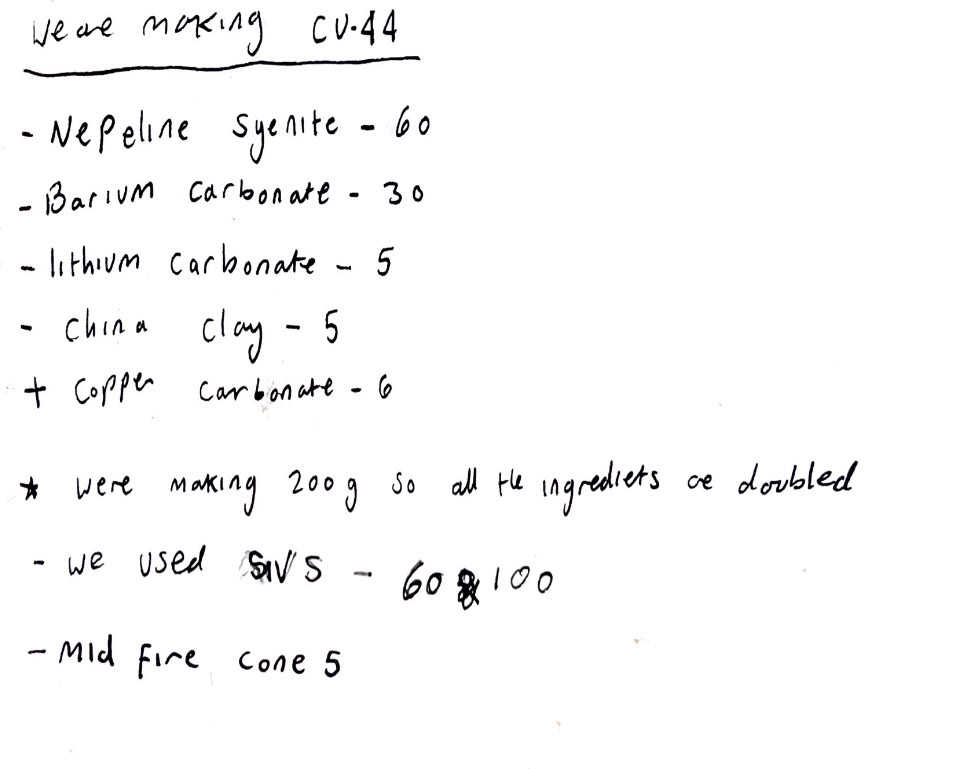 We are making CU-44
- Nepeline Syenite - 60
- Barium Carbonate - 30
- lithium Carbonate - 5
- China Clay - 5
+ Copper Carbonate - 6
* were making 200g so all the ingrediets are doubled
- we used SIVS - 60 & 100
- Mid fire cone 5